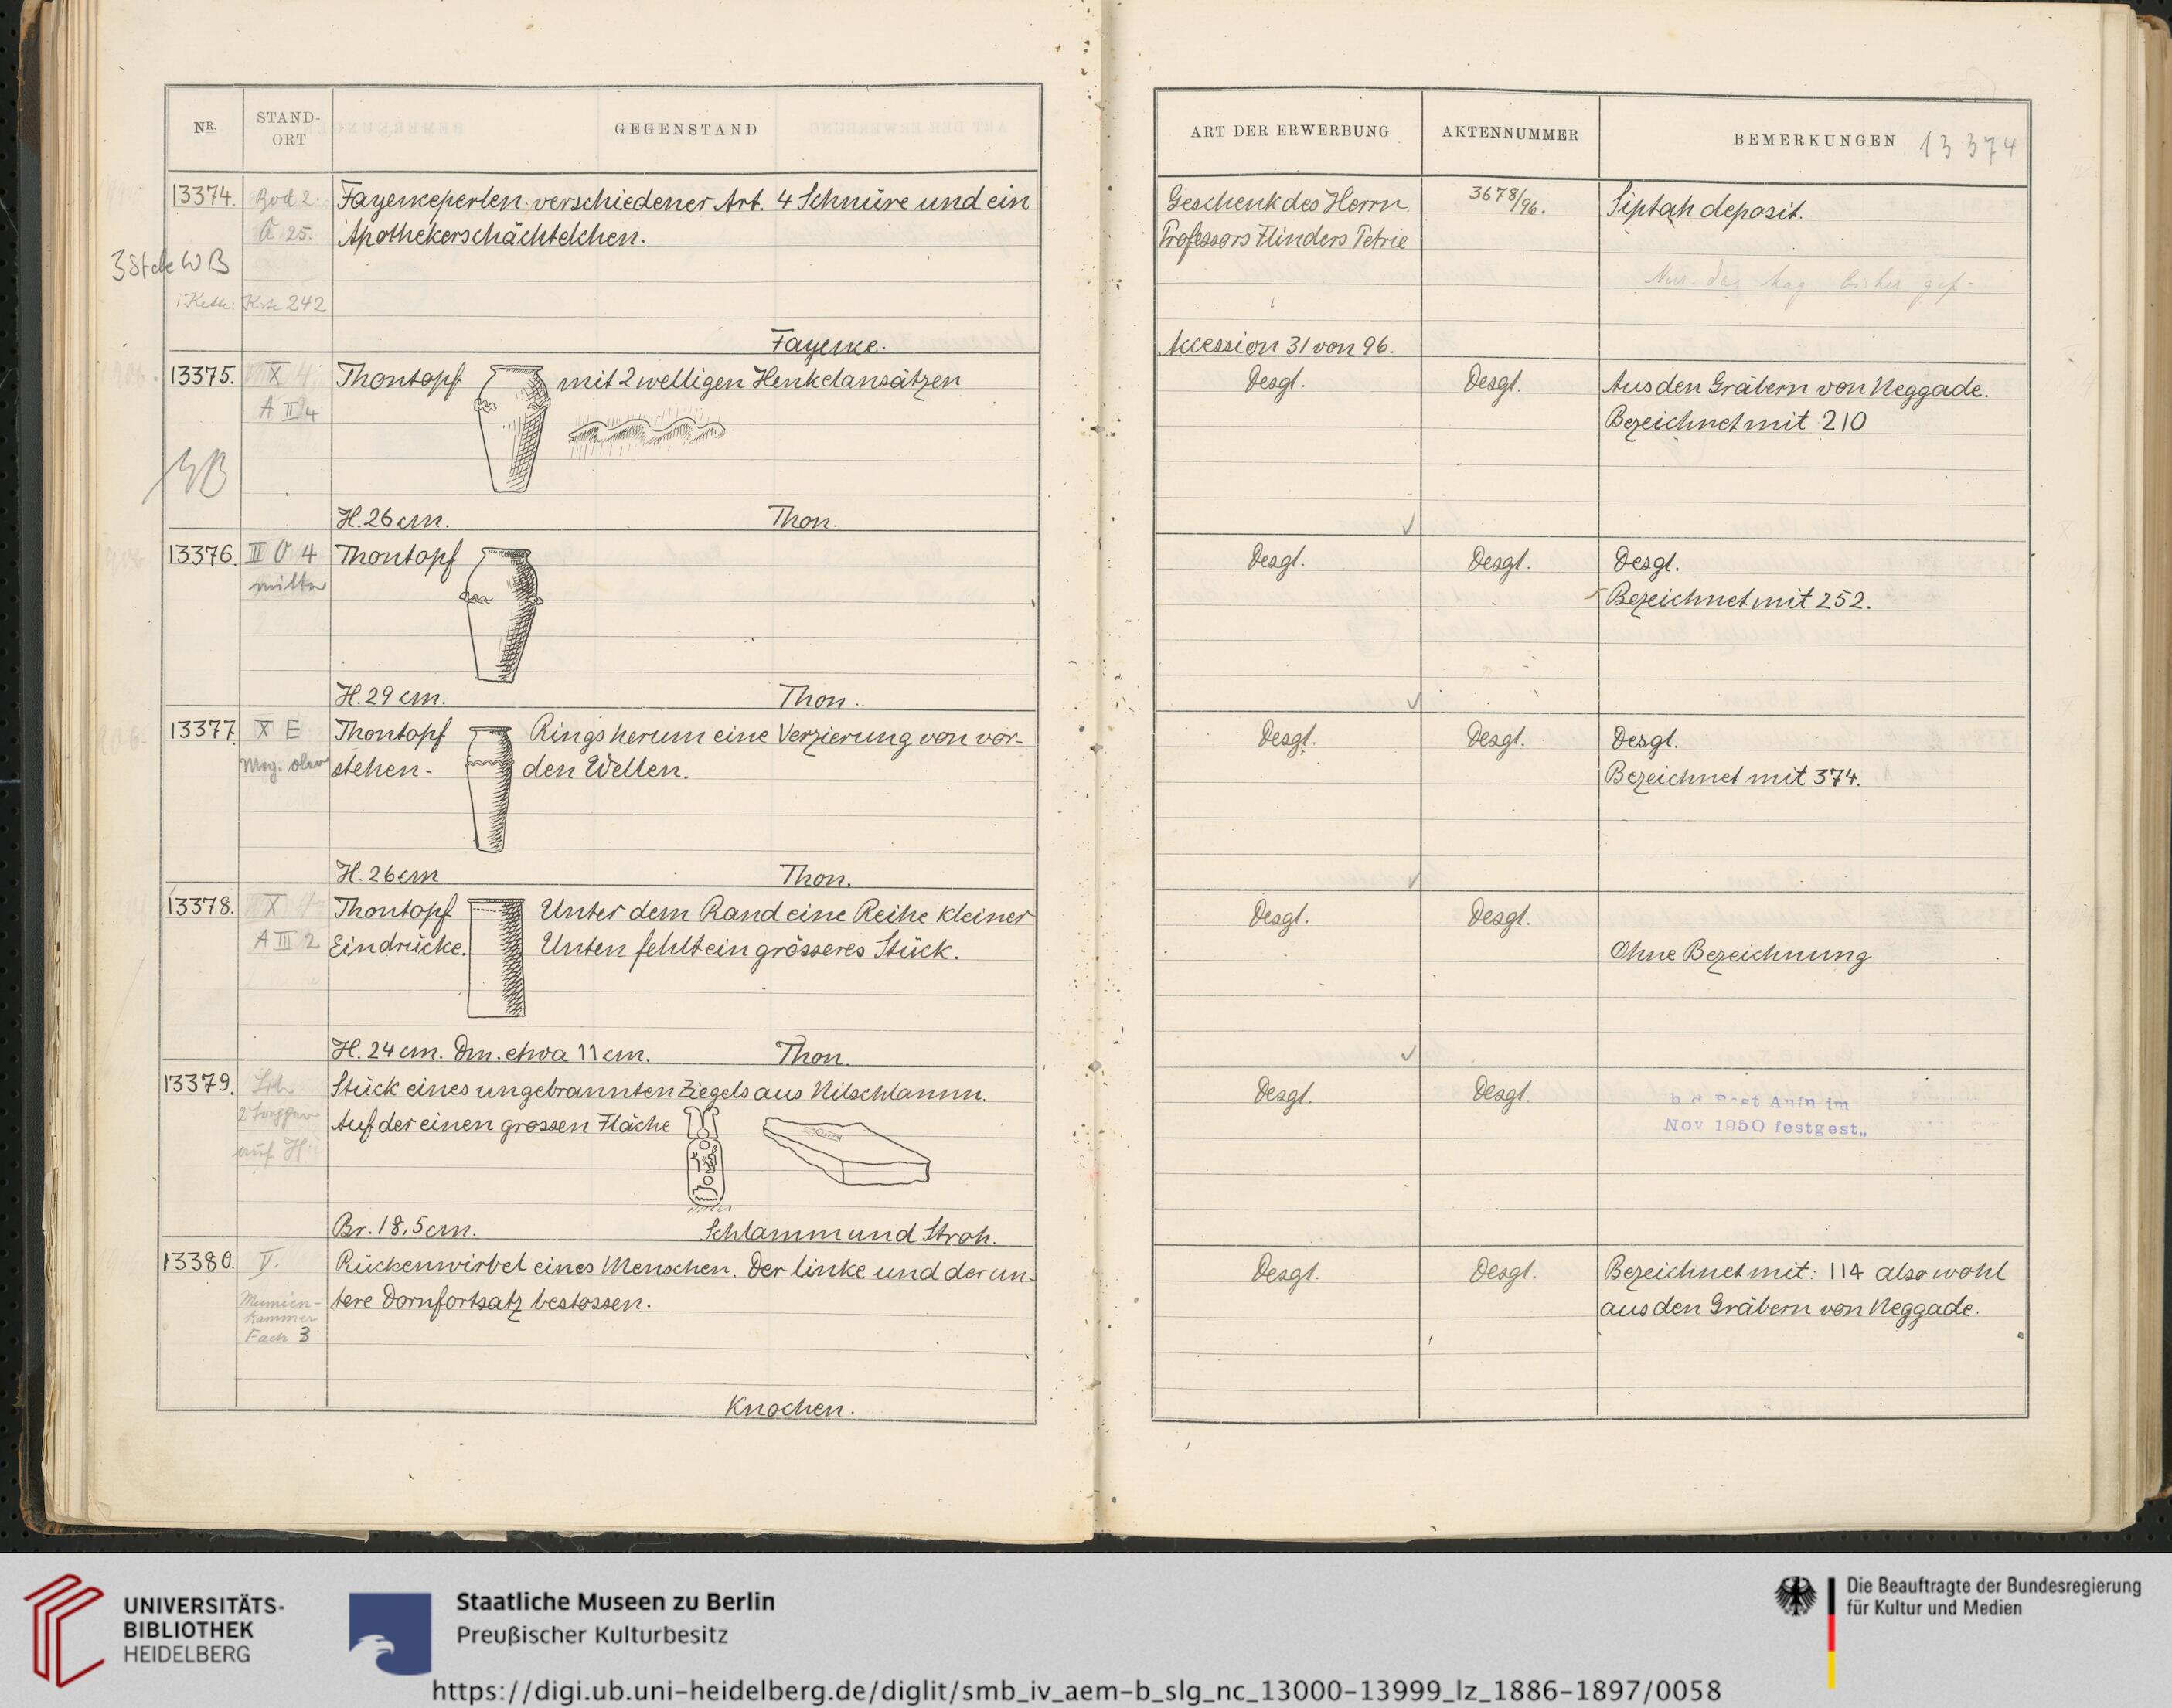 NR.
STAND-
ORT
GEGENSTAND
ART DER ERWERBUNG
AKTENNUMMER
BEMERKUNGEN
13374
13374.
Bod 2.
Fayenceperlen verschiedener Art. 4 Schnüre und ein
25.
Apothekerschächtelchen.
3 Stck WB
242
Fayence.
Geschenk des Herrn
Professors Flinders Petrie
3678/96.
Siptah deposit.
Accession 31 von 96.
13375.
X
A II 4
Thontopf mit 2 welligen Henkelansätzen
H. 26 cm.
Thon.
Desgl.
Desgl.
Aus den Gräbern von Neggade.
Bezeichnet mit 210
13376.
II O 4
mitte
Thontopf
H. 29 cm.
Thon.
Desgl.
Desgl.
Desgl.
Bezeichnet mit 252.
13377.
X E
Thontopf Rings herum eine Verzierung von vor-
stehen- den Wellen.
H. 26 cm
Thon.
Desgl.
Desgl.
Desgl.
Bezeichnet mit 374.
13378.
X
A III 2
Thontopf Unter dem Rand eine Reihe kleiner
Eindrücke. Unten fehlt ein grösseres Stück.
H. 24 cm. Dm. etwa 11 cm.
Thon.
Desgl.
Desgl.
Ohne Bezeichnung
13379.
auf
Stück eines ungebrannten Ziegels aus Nilschlamm.
Auf der einen grossen Fläche
Br. 18,5 cm.
Schlamm und Stroh.
Desgl.
Desgl.
im
Nov 1950 festgest„
13380.
V.
Mumien-
Kammer
Fach 3
Rückenwirbel eines Menschen. Der linke und der un-
tere Dornfortsatz bestossen.
Knochen.
Desgl.
Desgl.
Bezeichnet mit: 114 also wohl
aus den Gräbern von Neggade.
UNIVERSITÄTS-
BIBLIOTHEK
HEIDELBERG
Staatliche Museen zu Berlin
Preußischer Kulturbesitz
Die Beauftragte der Bundesregierung
für Kultur und Medien
https://digi.ub.uni-heidelberg.de/diglit/smb_iv_aem-b_slg_nc_13000-13999_lz_1886-1897/0058